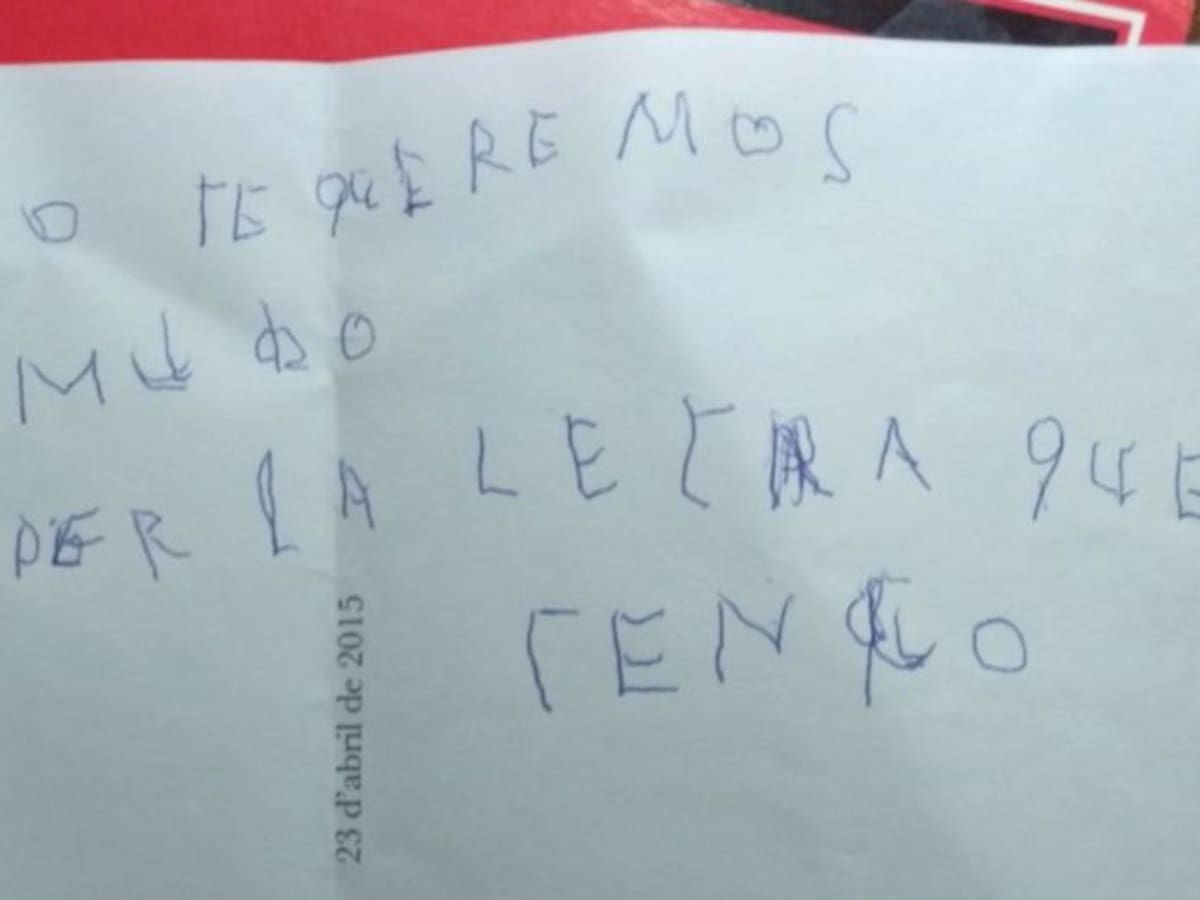 O TE QUEREMOS
MUSHO
PER LA LETRA QUE
TENGO
23 d'abril de 2015